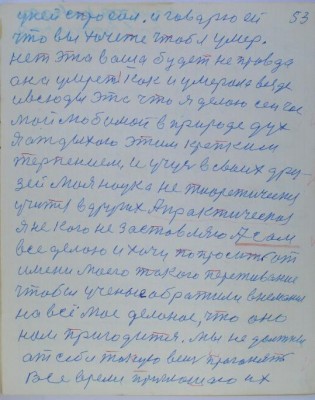 53
у ней спросил. и говорю ей
что вы хочете чтоб я умер.
нет эта ваша будет не правда
она умрет как и умерала везде
и всюди эта что я делаю сейчас
мой любимой в природе дух
Я отдыхаю этим крепким
терпением, и учус в своих дру-
зей моя наука не теоретически
учится в других А практическая
я не кого не заставляю А сам
все делаю и хочу попросить от
имени моего такого переживание
чтобы ученые обратили внимание
на всё мое деланое, что оно
нам пригодится. мы не должны
от себя такую вещ прогонять
Все время приглашаю их